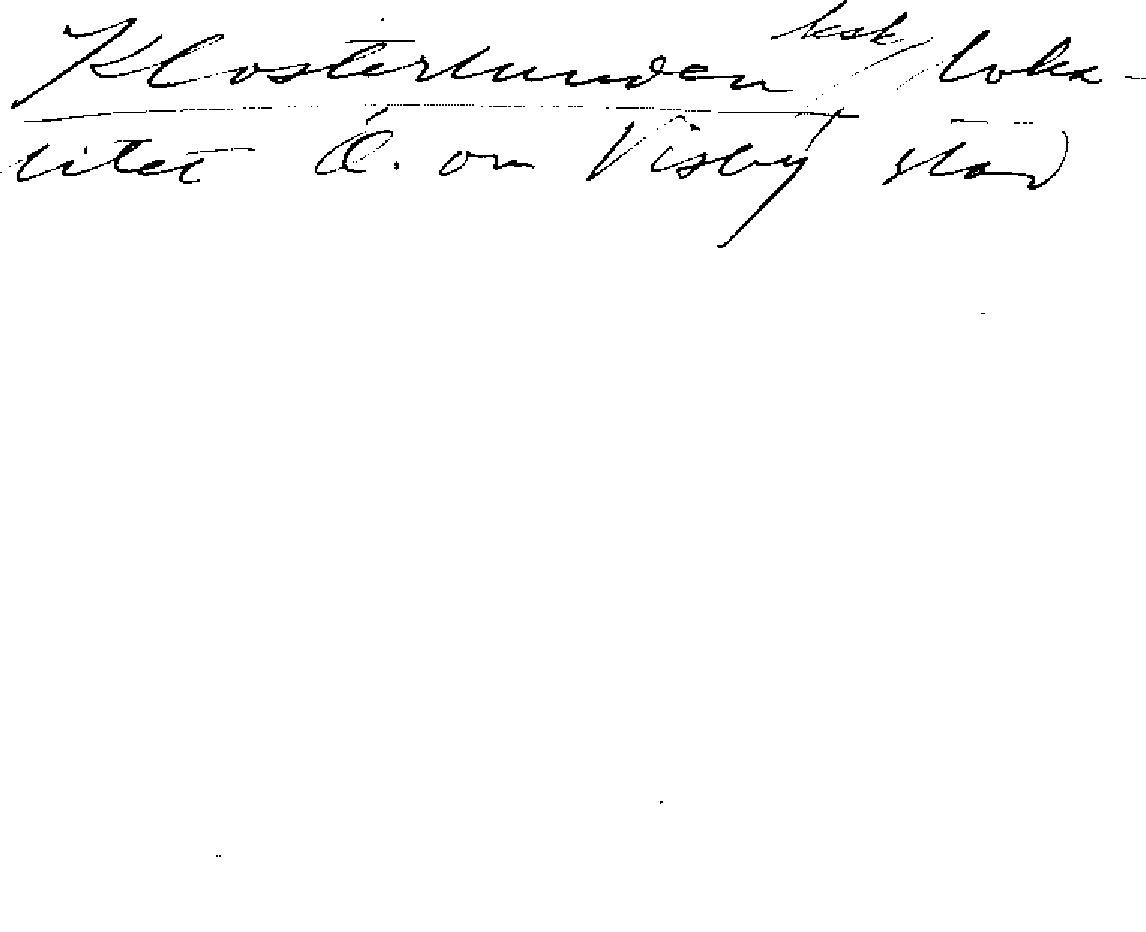 Klosterlunden ksk, loka-
litet Ö. om Visby stad